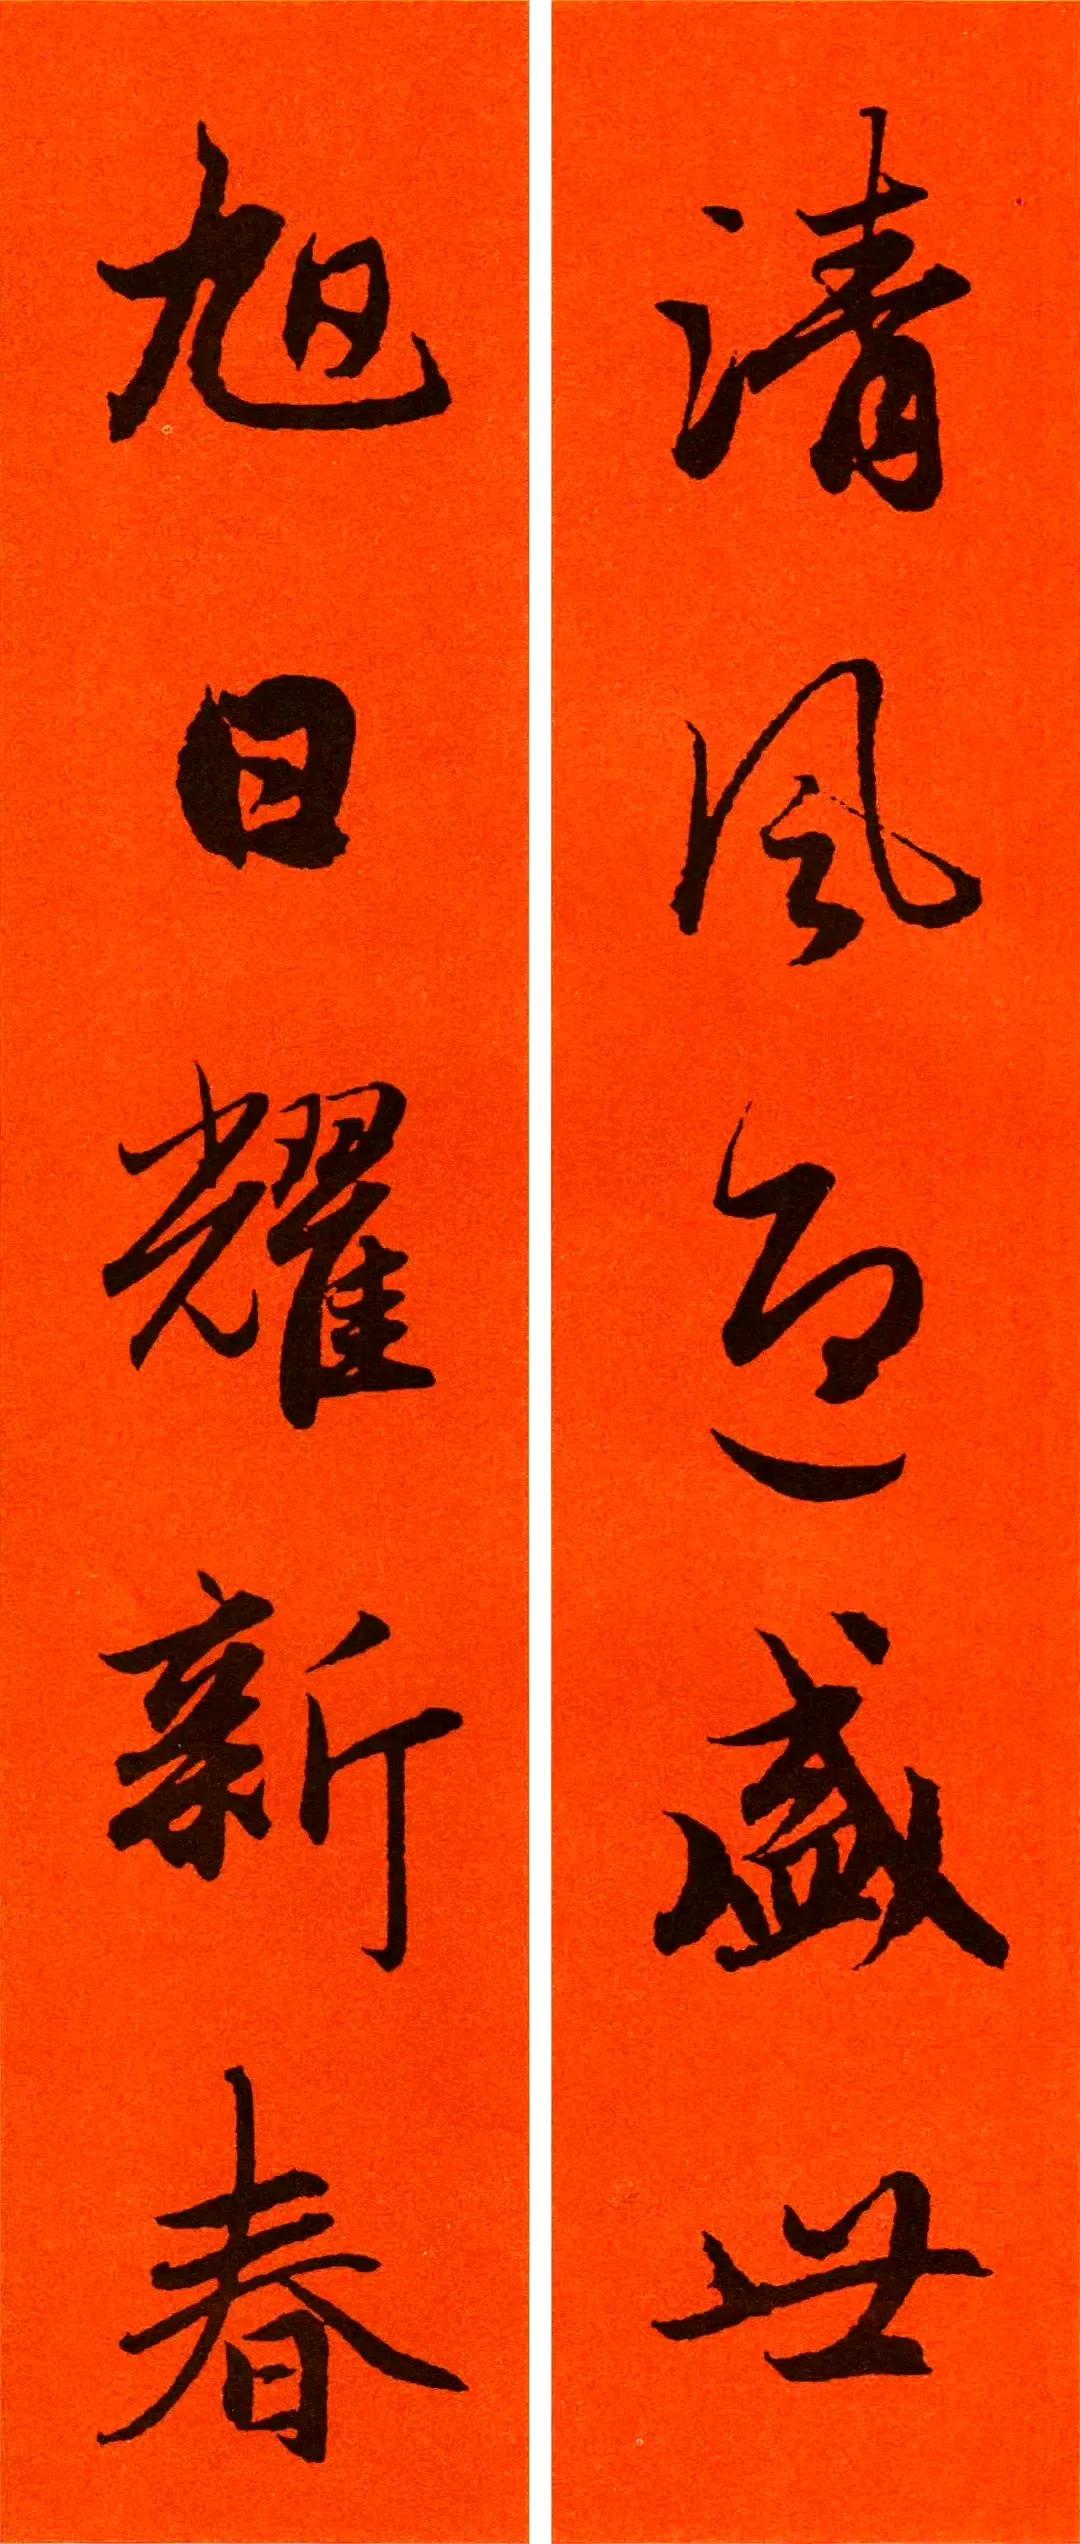 清風迎盛世
旭日耀新春